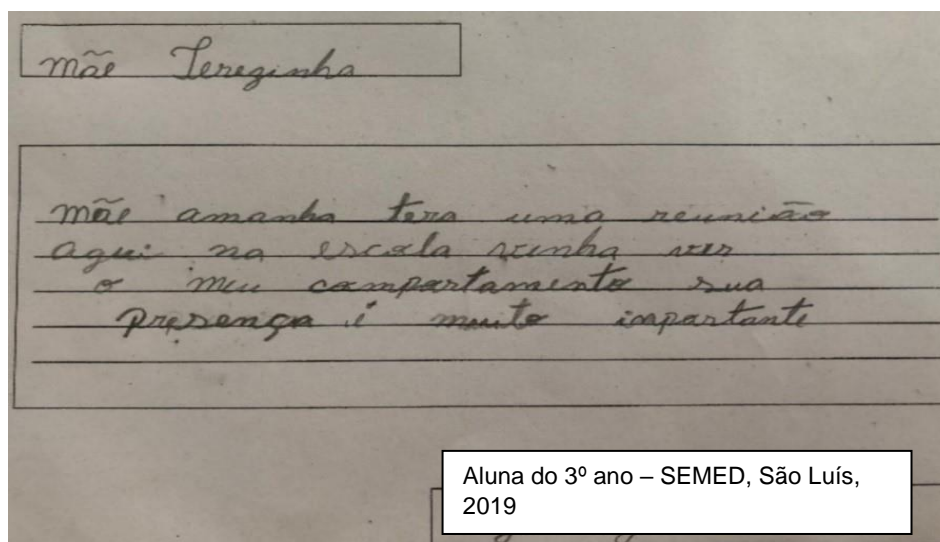 mãe Terezinha
mãe amanha tera uma reunião
aqui na escola venha ver
o meu compartamento sua
presença é muito inpartante
Aluna do 3º ano – SEMED, São Luís,
2019